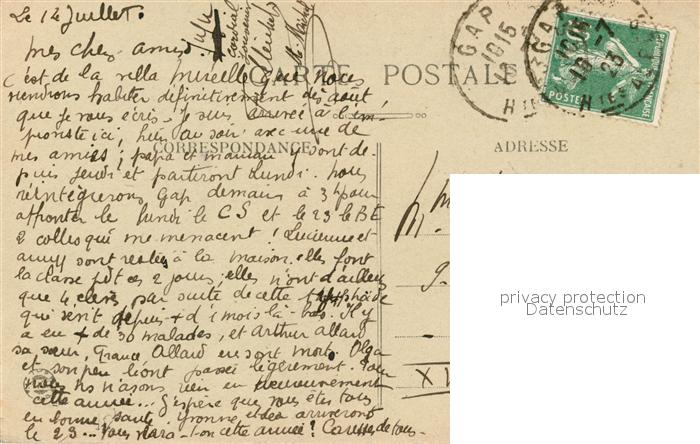 Le 12 Juillet.
Mes chers amis.
CARTE POSTALE
C'est de la villa Mireille que nous
viendrons habiter définitivement dès août
que je vous écris. Je suis arrivée à l'im-
proviste ici, hier au soir avec une de
mes amies; papa et maman y sont de-
CORRESPONDANCE
ADRESSE
puis jeudi et partiront lundi. nous
réintégrerons Gap demain à 3h pour
affronter le lundi le CS et le 23 le BE
2 colles qui me menacent! Lucienne et
sont restées à la maison. elles font
la classe ces 2 jours; elles n'ont d'ailleurs
que élèves par suite de cette
qui sévit depuis + d' 1 mois là-bas. Il y
a eu + de 30 malades, et Arthur Allard
sa sœur, France Allard en sont morts. Olga
et son père l'ont passée légèrement. Pour
nous ns n'avons rien eu heureusement
cette année... J'espère que vous êtes tous
en bonne santé. Yvonne et Léa arriveront
le 23... Vous verra-t-on cette année? Caresses de tous.
GAP
POSTES
privacy protection
Datenschutz